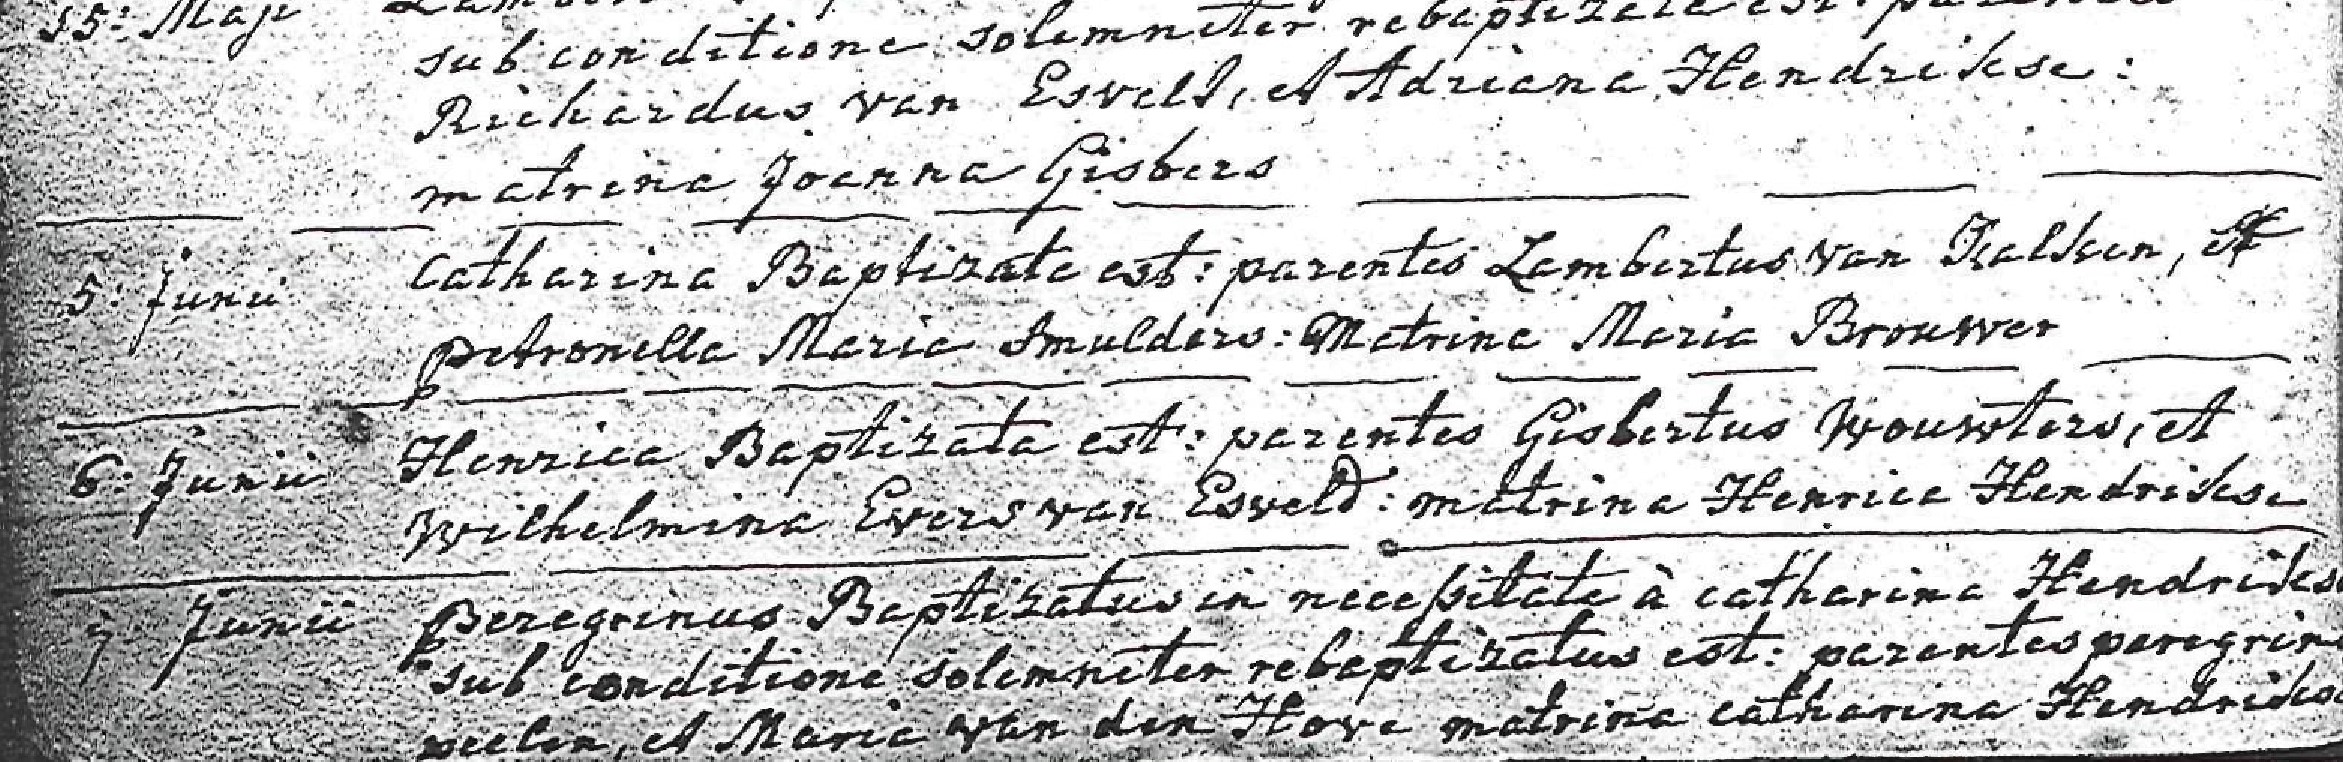 15: Maji
sub conditione solemniter rebaptizata est: parentes
Richardus van Esvelt, et Adriana Hendrikse:
matrina Joanna Gisbers
5: Junii Catharina Baptizata est: parentes Lambertus van Kalken, et
petronella Maria Smulders: Matrina Maria Brouwer
6: Junii Henrica Baptizata est: parentes Gisbertus Wouwters, et
Wilhelmina Evers van Esveld: matrina Henrica Hendrikse
7 Junii Peregrinus Baptizatus in necessitate à catharina Hendrikse
sub conditione solemniter rebaptizatus est: parentes peregrin
peelen, et Maria van den Hove matrina catharina Hendrikse